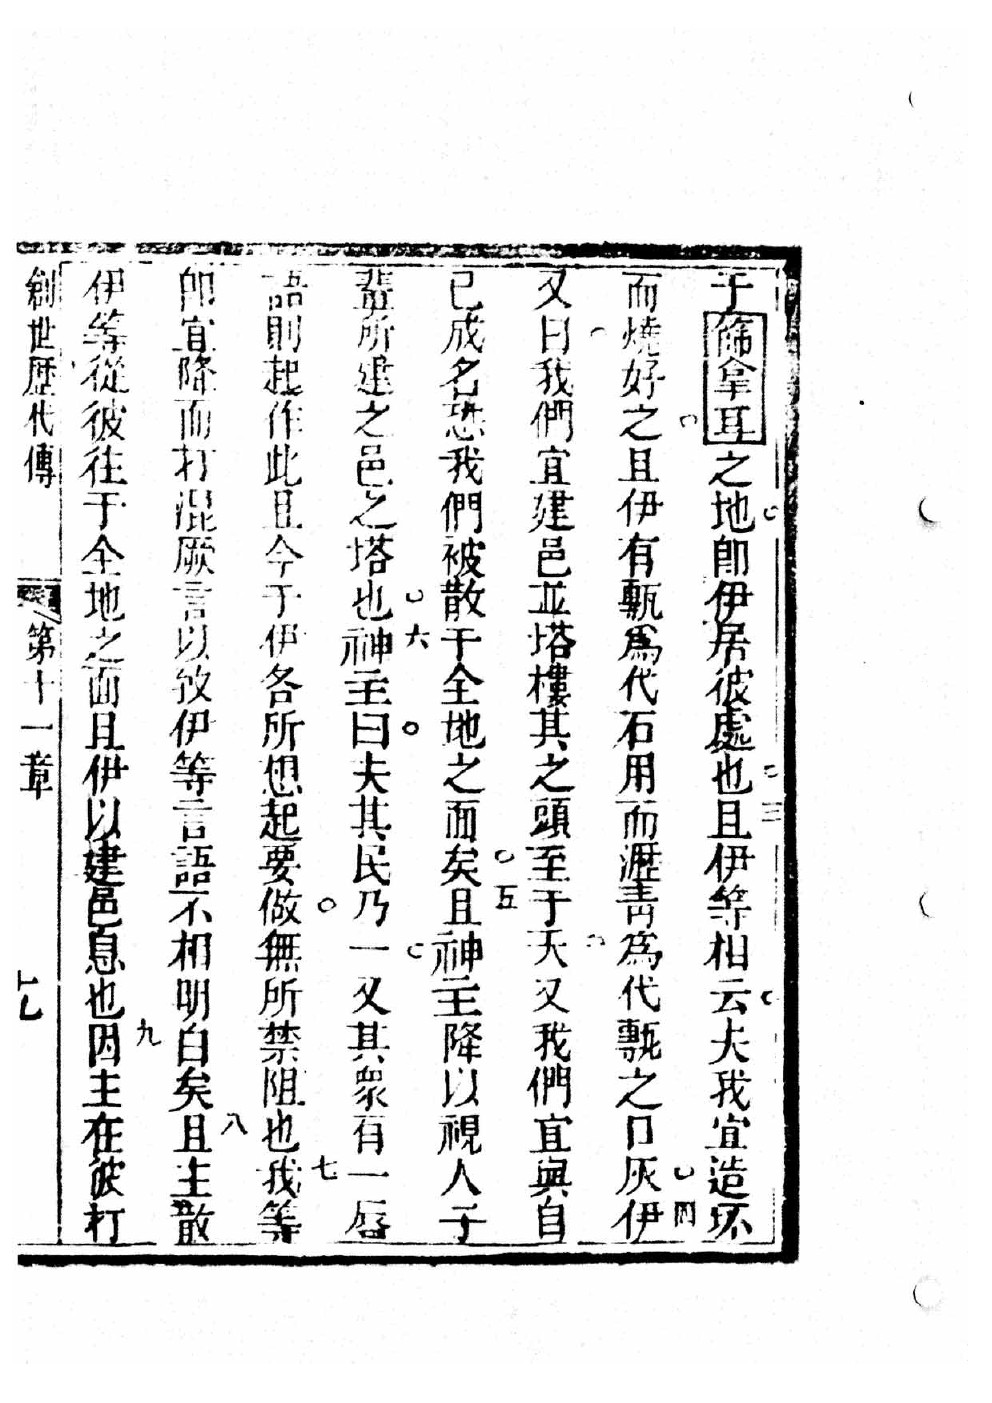 于篩拿耳之地卽伊居彼處也三且伊等相云夫我宜造坯
而燒好之且伊有甎爲代石用而瀝青爲代甎之口灰四伊
又曰我們宜建邑並塔樓其之頭至于天又我們宜與自
已成名恐我們被散于全地之面矣五且神主降以視人子
輩所建之邑之塔也六神主曰夫其民乃一又其衆有一唇
語則起作此且今于伊各所想起要做無所禁阻也七我等
卽宜降而打混厥言以致伊等言語不相明白矣八且主散
伊等從彼往于全地之面且伊以建邑息也九因主在彼打
創世歷代傳 第十一章 十七